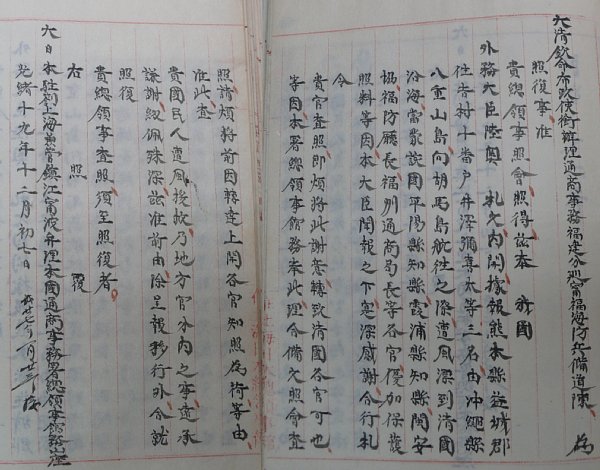 大清欽命布政使銜辦理通商事務福建分巡甯福海防兵備道陳　為
照復事准
貴總領事照會照得茲本　我國
外務大臣陸奧　札文內開據報熊本縣益城郡
住吉村十番戶井澤彌喜太等三名由沖繩縣
八重山島向胡馬島航往之際遭風漂到清國
沿海當蒙該國平陽縣知縣霞浦縣知縣閩安
協福防廳長福州通商局長等各官優加保護
照料等因本大臣閱報之下寔深感謝合行札
令
貴官查照即煩將此謝意轉致清國各官可也
等因本署總領事館務奉此理合備文照會查
照請煩將前因轉達上開各官知照為荷等由
准此查
貴國民人遭風援救乃地方官分內之事遠承
謙謝紉佩殊深茲准前由除呈報移行外合就
照復
貴總領事查照須至照復者
右　照　復
大日本駐劄上海兼管鎮江甯波辦理本國通商事務署總領事館務山座
光緒十九年十二月初七日